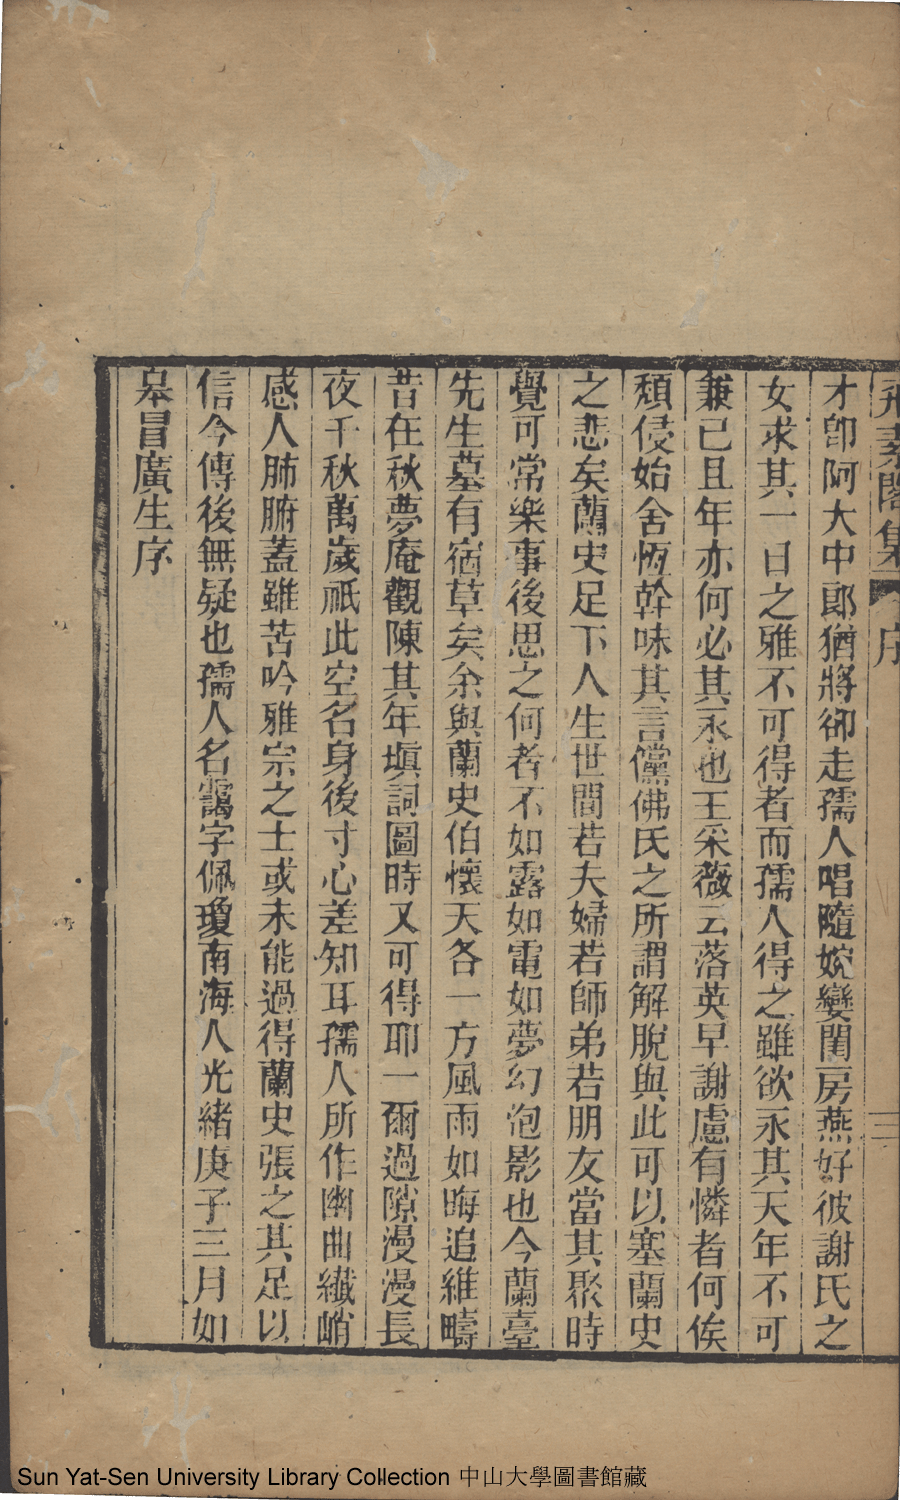 飛素閣集 序 三
才卽阿大中郎猶將卻走孺人唱隨婉孌閨房燕好彼謝氏之
女求其一日之雅不可得者而孺人得之雖欲永其天年不可
兼已且年亦何必其永也王采薇云落英早謝慮有憐者何俟
頹侵始舍恆幹味其言儻佛氏之所謂解脫與此可以塞蘭史
之悲矣蘭史足下人生世間若夫婦若師弟若朋友當其聚時
覺可常樂事後思之何者不如露如電如夢幻泡影也今蘭臺
先生墓有宿草矣余與蘭史伯懷天各一方風雨如晦追維疇
昔在秋夢庵觀陳其年塡詞圖時又可得耶一爾過隙漫漫長
夜千秋萬歲祇此空名身後寸心差知耳孺人所作幽曲纖峭
感人肺腑蓋雖苦吟雅宗之士或未能過得蘭史張之其足以
信今傳後無疑也孺人名靄字佩瓊南海人光緒庚子三月如
皋冒廣生序
Sun Yat-Sen University Library Collection 中山大學圖書館藏